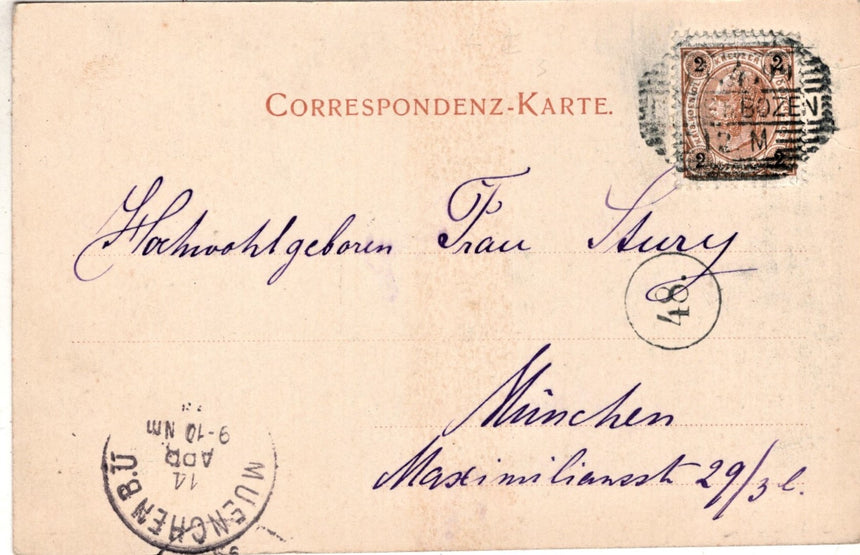 CORRESPONDENZ-KARTE.
2 KREUZER 2
BOZEN
12 M
2 2
Hochwohlgeboren Frau Stury
48.
München
Maximiliansstr 29/3 l.
MUENCHEN B.U
14
9-10 Nm